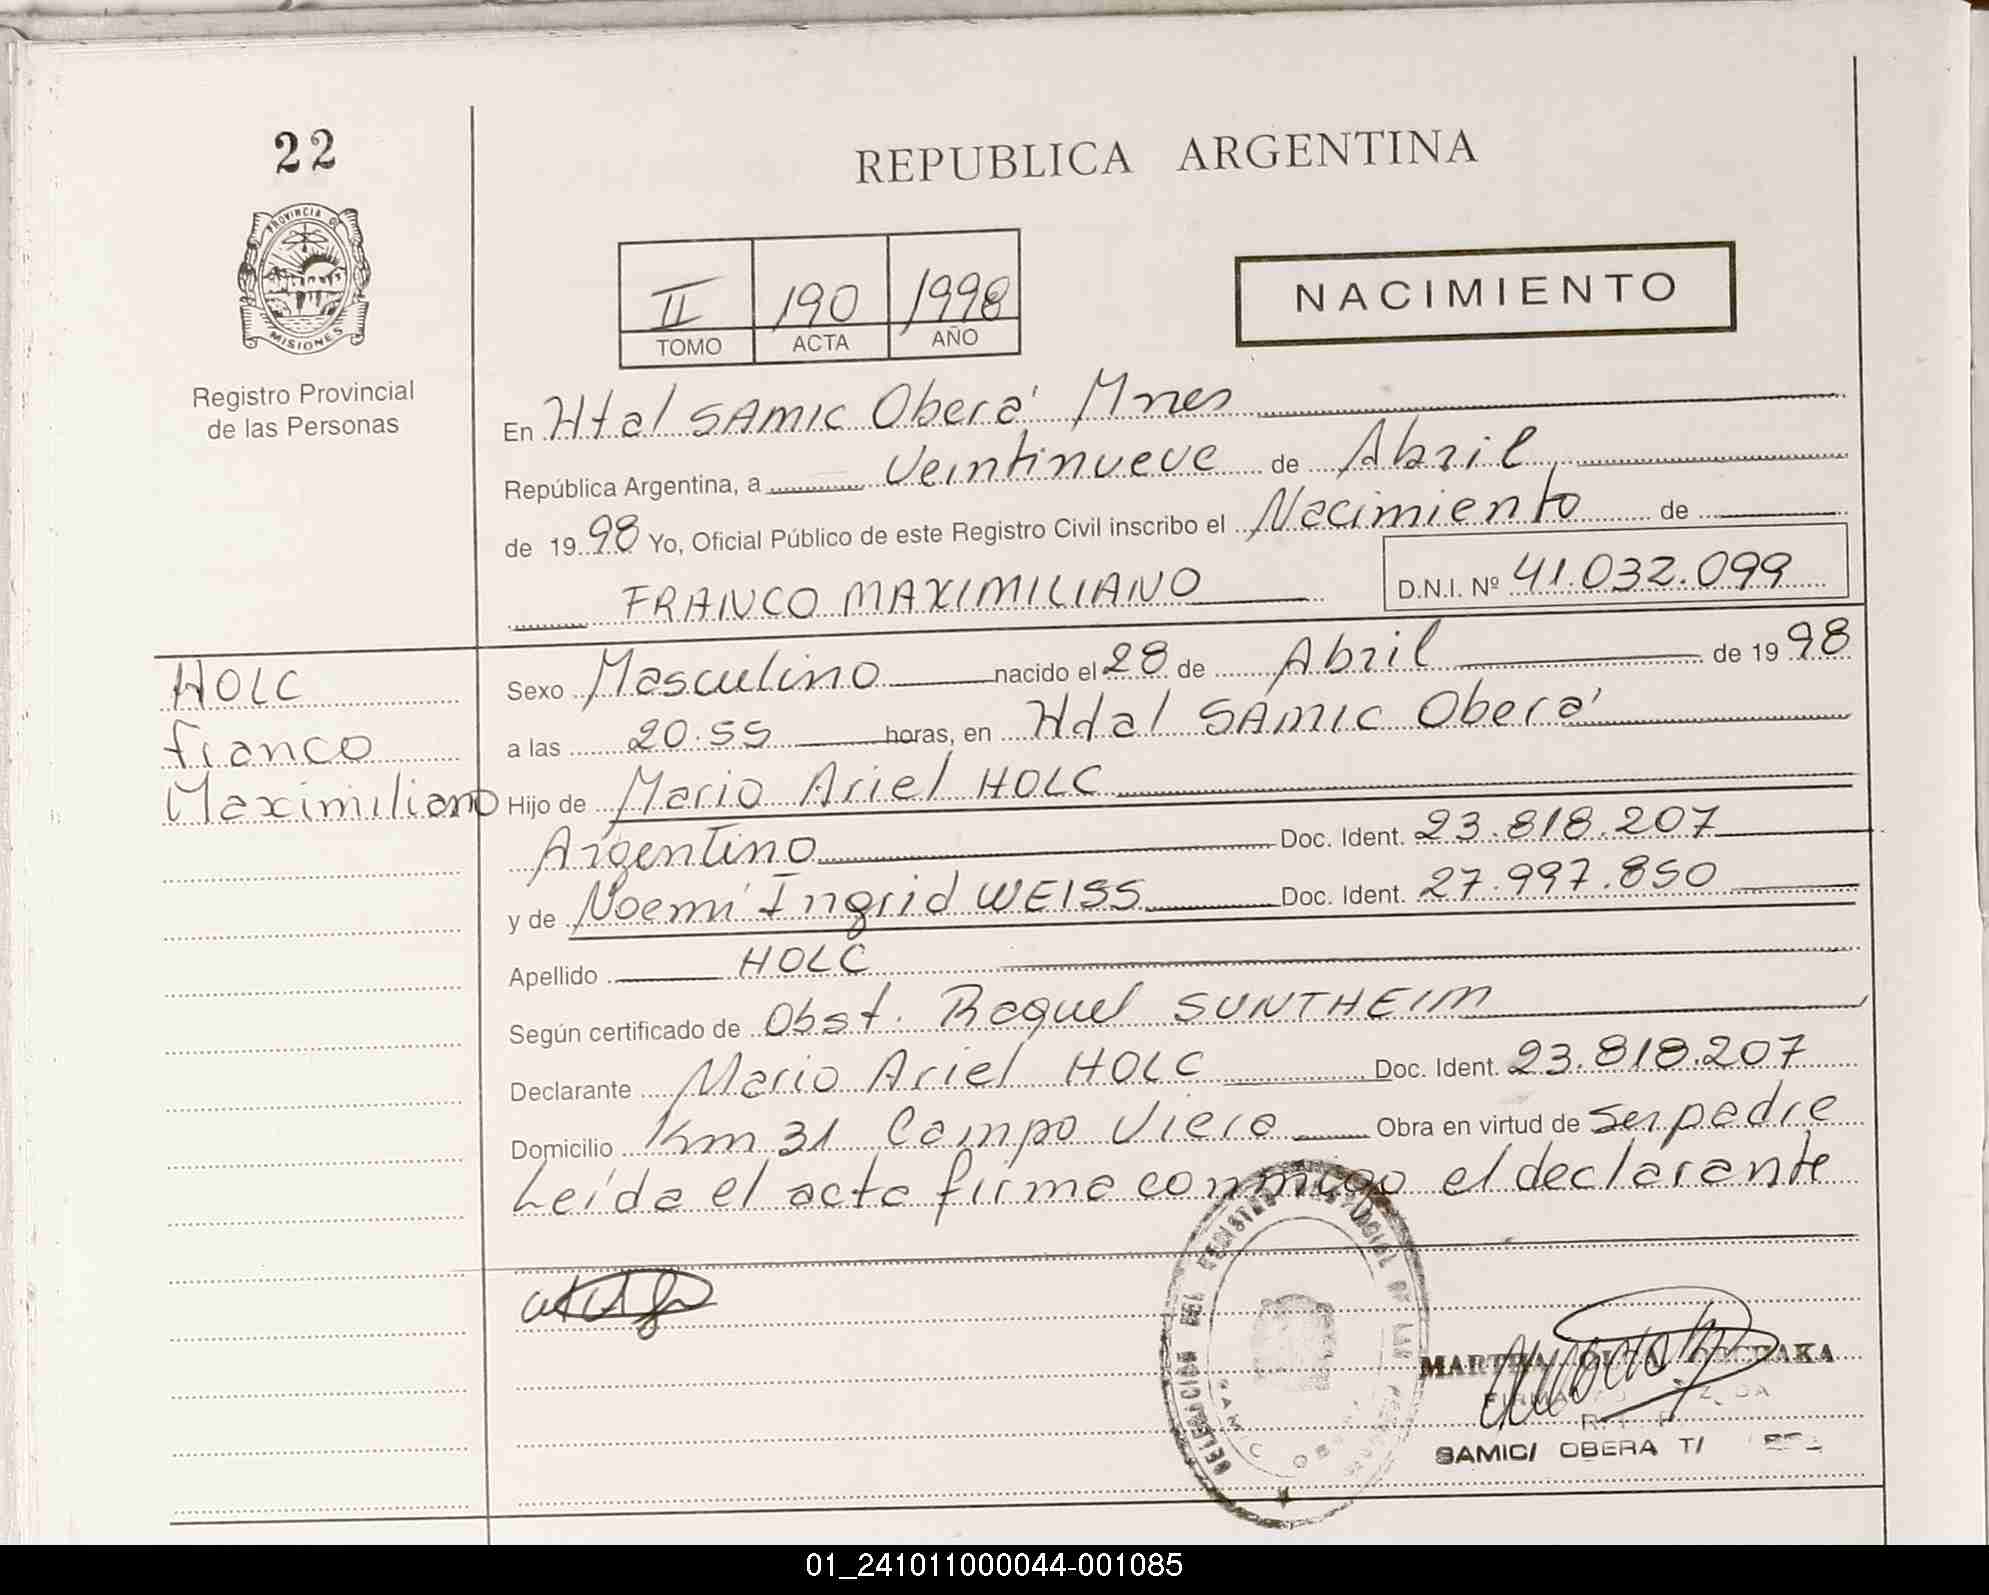 22
REPUBLICA ARGENTINA
PROVINCIA DE
MISIONES
Registro Provincial
de las Personas
II 190 1998
TOMO ACTA AÑO
NACIMIENTO
En Htal SAMIC Oberá Mnes
República Argentina, a Veintinueve de Abril
de 1998 Yo, Oficial Público de este Registro Civil inscribo el Nacimiento de
FRANCO MAXIMILIANO D.N.I. Nº 41.032.099
HOLC
Franco
Maximiliano
Sexo Masculino nacido el 28 de Abril de 1998
a las 20.55 horas, en Hdal SAMIC Oberá
Hijo de Mario Ariel HOLC
Argentino Doc. Ident. 23.818.207
y de Noemí Ingrid WEISS Doc. Ident. 27.997.850
Apellido HOLC
Según certificado de Obst. Raquel SUNTHEIM
Declarante Mario Ariel HOLC Doc. Ident. 23.818.207
Domicilio Km 31 Campo Viera Obra en virtud de ser padre
Leída el acta firma conmigo el declarante
DELEGACION DEL REGISTRO PROVINCIAL DE LAS
SAMIC OBERA
MARTHA
SAMIC/ OBERA T/
01_241011000044-001085